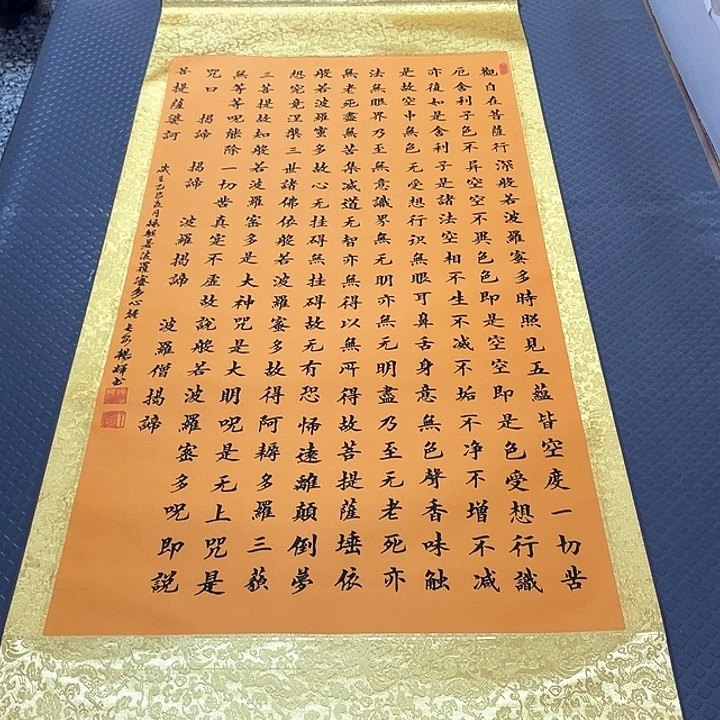 觀自在菩薩行深般若波羅蜜多時照見五蘊皆空度一切苦
厄舍利子色不异空空不異色色即是空空即是色受想行識
亦復如是舍利子是諸法空相不生不减不垢不净不增不减
是故空中無色无受想行识無眼耳鼻舌身意無色聲香味触
法無眼界乃至無意識界無无明亦無无明盡乃至无老死亦
無老死盡無苦集减道无智亦無得以無所得故菩提薩埵依
般若波羅蜜多故心无挂碍無挂碍故无有恐怖遠離顛倒夢
想究竟涅槃三世諸佛依般若波羅蜜多故得阿耨多羅三藐
三菩提故知般若波羅蜜多是大神咒是大明呪是无上咒是
無等等呪能除一切苦真实不虛故說般若波羅蜜多呪即說
咒曰 揭諦 揭諦 波羅揭諦 波羅僧揭諦
菩提薩婆訶